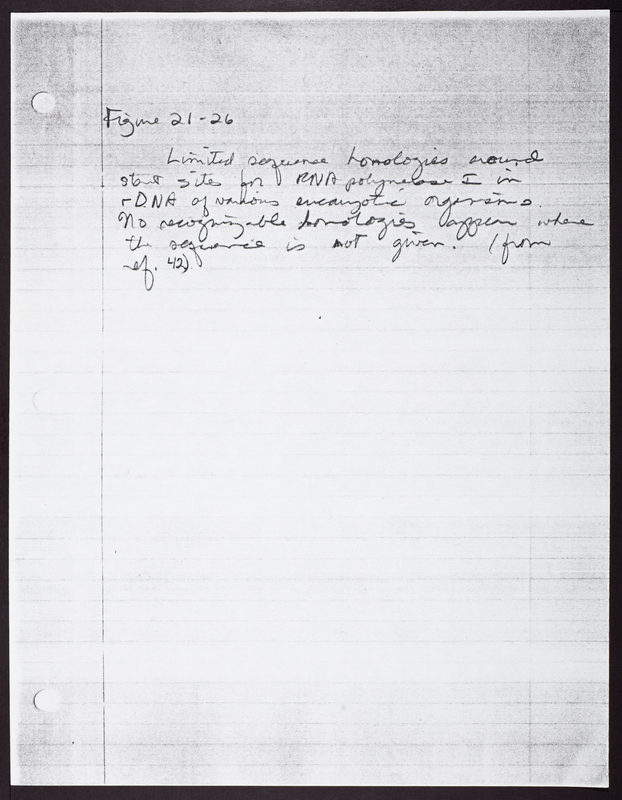 Figure 21-26
Limited sequence homologies around
start sites for RNA polymerase I in
rDNA of various eucaryotic organisms.
No recognizable homologies appear where
the sequence is not given. (from
ref. 42)